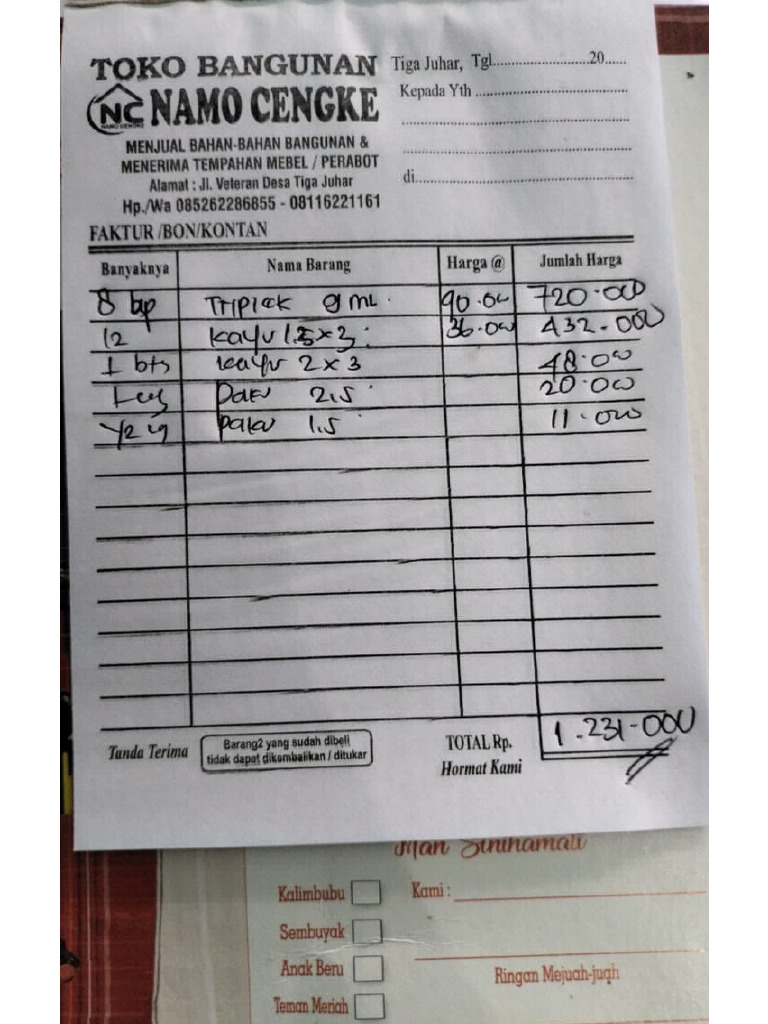 TOKO BANGUNAN
NC NAMO CENGKE
NAMO CENGKE
MENJUAL BAHAN-BAHAN BANGUNAN &
MENERIMA TEMPAHAN MEBEL / PERABOT
Alamat : Jl. Veteran Desa Tiga Juhar
Hp./Wa 085262286855 - 08116221161
Tiga Juhar, Tgl............................20......
Kepada Yth ............................................
............................................
............................................
di............................................
FAKTUR /BON/KONTAN
Banyaknya Nama Barang Harga @ Jumlah Harga
8 TRIPLEK 9 ML 90.00 720.000
12 kayu 1.5 x 3 36.000 432.000
1 bts kayu 2 x 3 48.000
1 kg Paku 2,5 20.000
1/2 kg paku 1.5 11.000
TOTAL Rp. 1.231.000
Tanda Terima
Barang2 yang sudah dibeli
tidak dapat dikembalikan / ditukar
Hormat Kami
Man Sinihamati
Kalimbubu Kami :
Sembuyak
Anak Beru Ringan Mejuah-juah
Teman Meriah